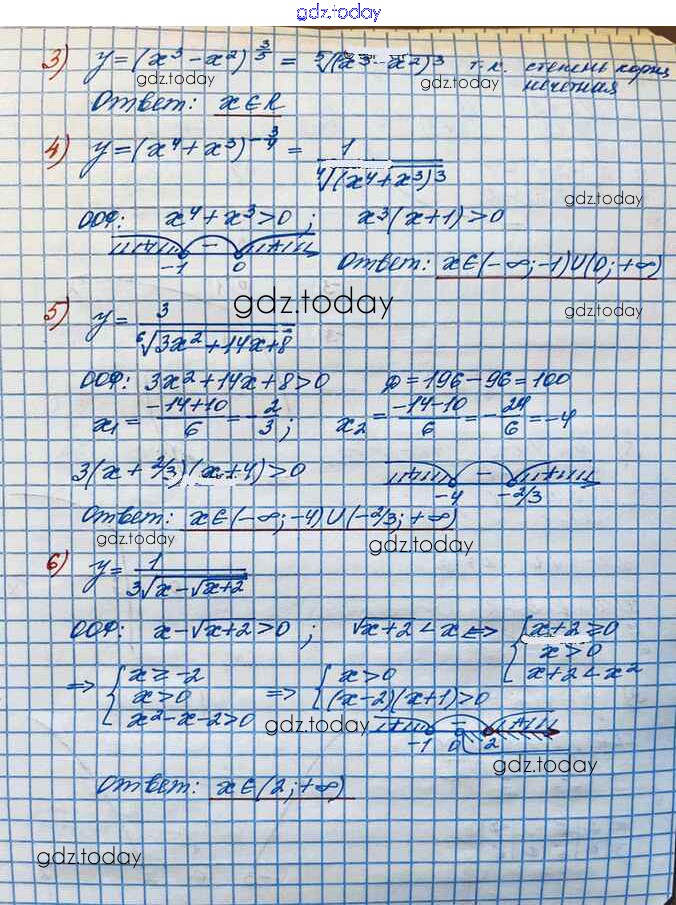 gdz.today
3) y=(x³-x²)^(3/5) = ⁵√(x³-x²)³ т.к. степень корня
gdz.today gdz.today нечетная
Ответ: x∈R
4) y=(x⁴+x³)^(-3/4) = 1/⁴√(x⁴+x³)³
gdz.today
ООФ: x⁴+x³>0 ; x³(x+1)>0
+ - +
-1 0
Ответ: x∈(-∞;-1)∪(0;+∞)
gdz.today gdz.today
5) y= 3/⁶√3x²+14x+8
ООФ: 3x²+14x+8>0 D=196-96=100
x₁ = (-14+10)/6 = -2/3 ; x₂ = (-14-10)/6 = -24/6 = -4
3(x+2/3)(x+4)>0
+ - +
-4 -2/3
Ответ: x∈(-∞;-4)∪(-2/3;+∞)
gdz.today gdz.today
6) y= 1/3√x-√x+2
ООФ: x-√x+2>0 ; √x+2<x ⇔ { x+2≥0
x>0
x+2<x²
⇒ { x≥-2 ⇒ { x>0
x>0 (x-2)(x+1)>0
x²-x-2>0
gdz.today
+ - +
-1 0 2
gdz.today
Ответ: x∈(2;+∞)
gdz.today